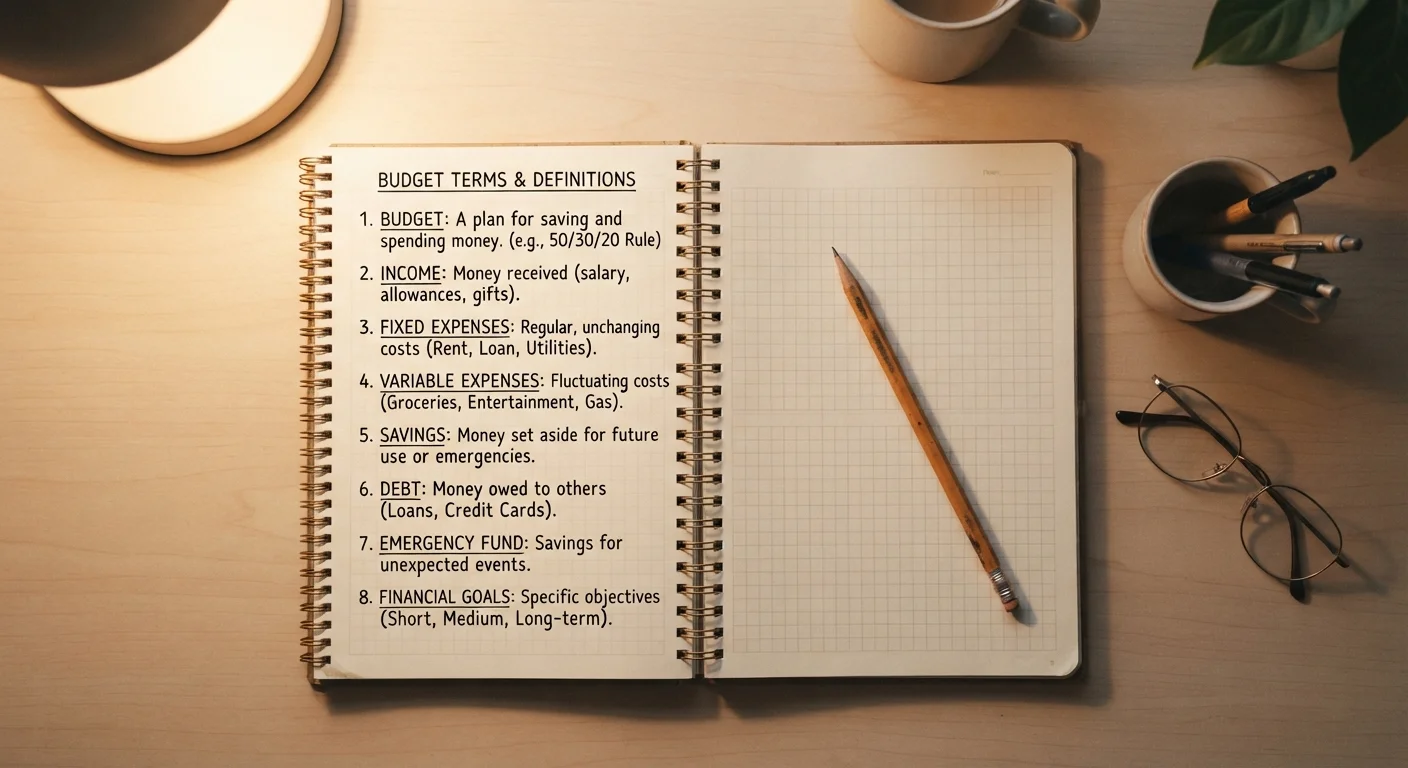 BUDGET TERMS & DEFINITIONS
1. BUDGET: A plan for saving and
spending money. (e.g., 50/30/20 Rule)
2. INCOME: Money received (salary,
allowances, gifts).
3. FIXED EXPENSES: Regular, unchanging
costs (Rent, Loan, Utilities).
4. VARIABLE EXPENSES: Fluctuating costs
(Groceries, Entertainment, Gas).
5. SAVINGS: Money set aside for future
use or emergencies.
6. DEBT: Money owed to others
(Loans, Credit Cards).
7. EMERGENCY FUND: Savings for
unexpected events.
8. FINANCIAL GOALS: Specific objectives
(Short, Medium, Long-term).